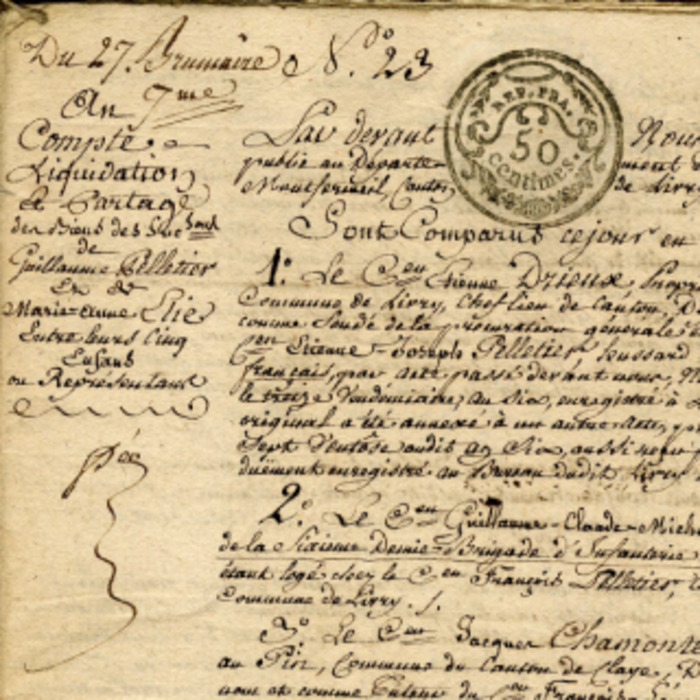 Du 27. Brumaire N.° 23
An 7.me
Compte
Liquidation
Et Partage
des Biens des Succ.ons
de
Guillaume Pelletier
Et de
Marie-anne Elie
Entre leurs Cinq
Enfans
ou Représentans
REP. FRA.
50
centimes.
Par devant Nous
publié au Departe ment
Montfermeil, Canton de Livry
Sont Comparus cejour en
1.° Le C.en Etienne Drieux
Commune de Livry, Chef lieu de Canton,
comme fondé de la procuration generale
C.en Etienne-Joseph Pelletier houssard
français, par acte passé devant nous,
le treize Vendemiaire, an Six, enregistré à
original a été annexé à un autre acte,
Sept Ventôse audit an Six, aussi
duëment enregistré au Bureau dudit Livry
2.° Le C.en Guillaume-Claude-Mich
de la Sixieme Demie-Brigade d'Infanterie
étant logé chez le C.en François Pelletier,
Commune de Livry.
3.° Le C.en Jacques Chamont
au Pin, Commune du Canton de Claye,
nom et comme Tuteur du C.en François